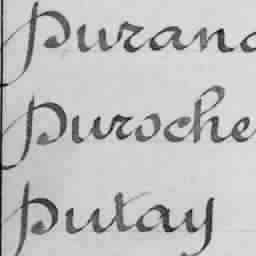 Puran
Puroche
Putay